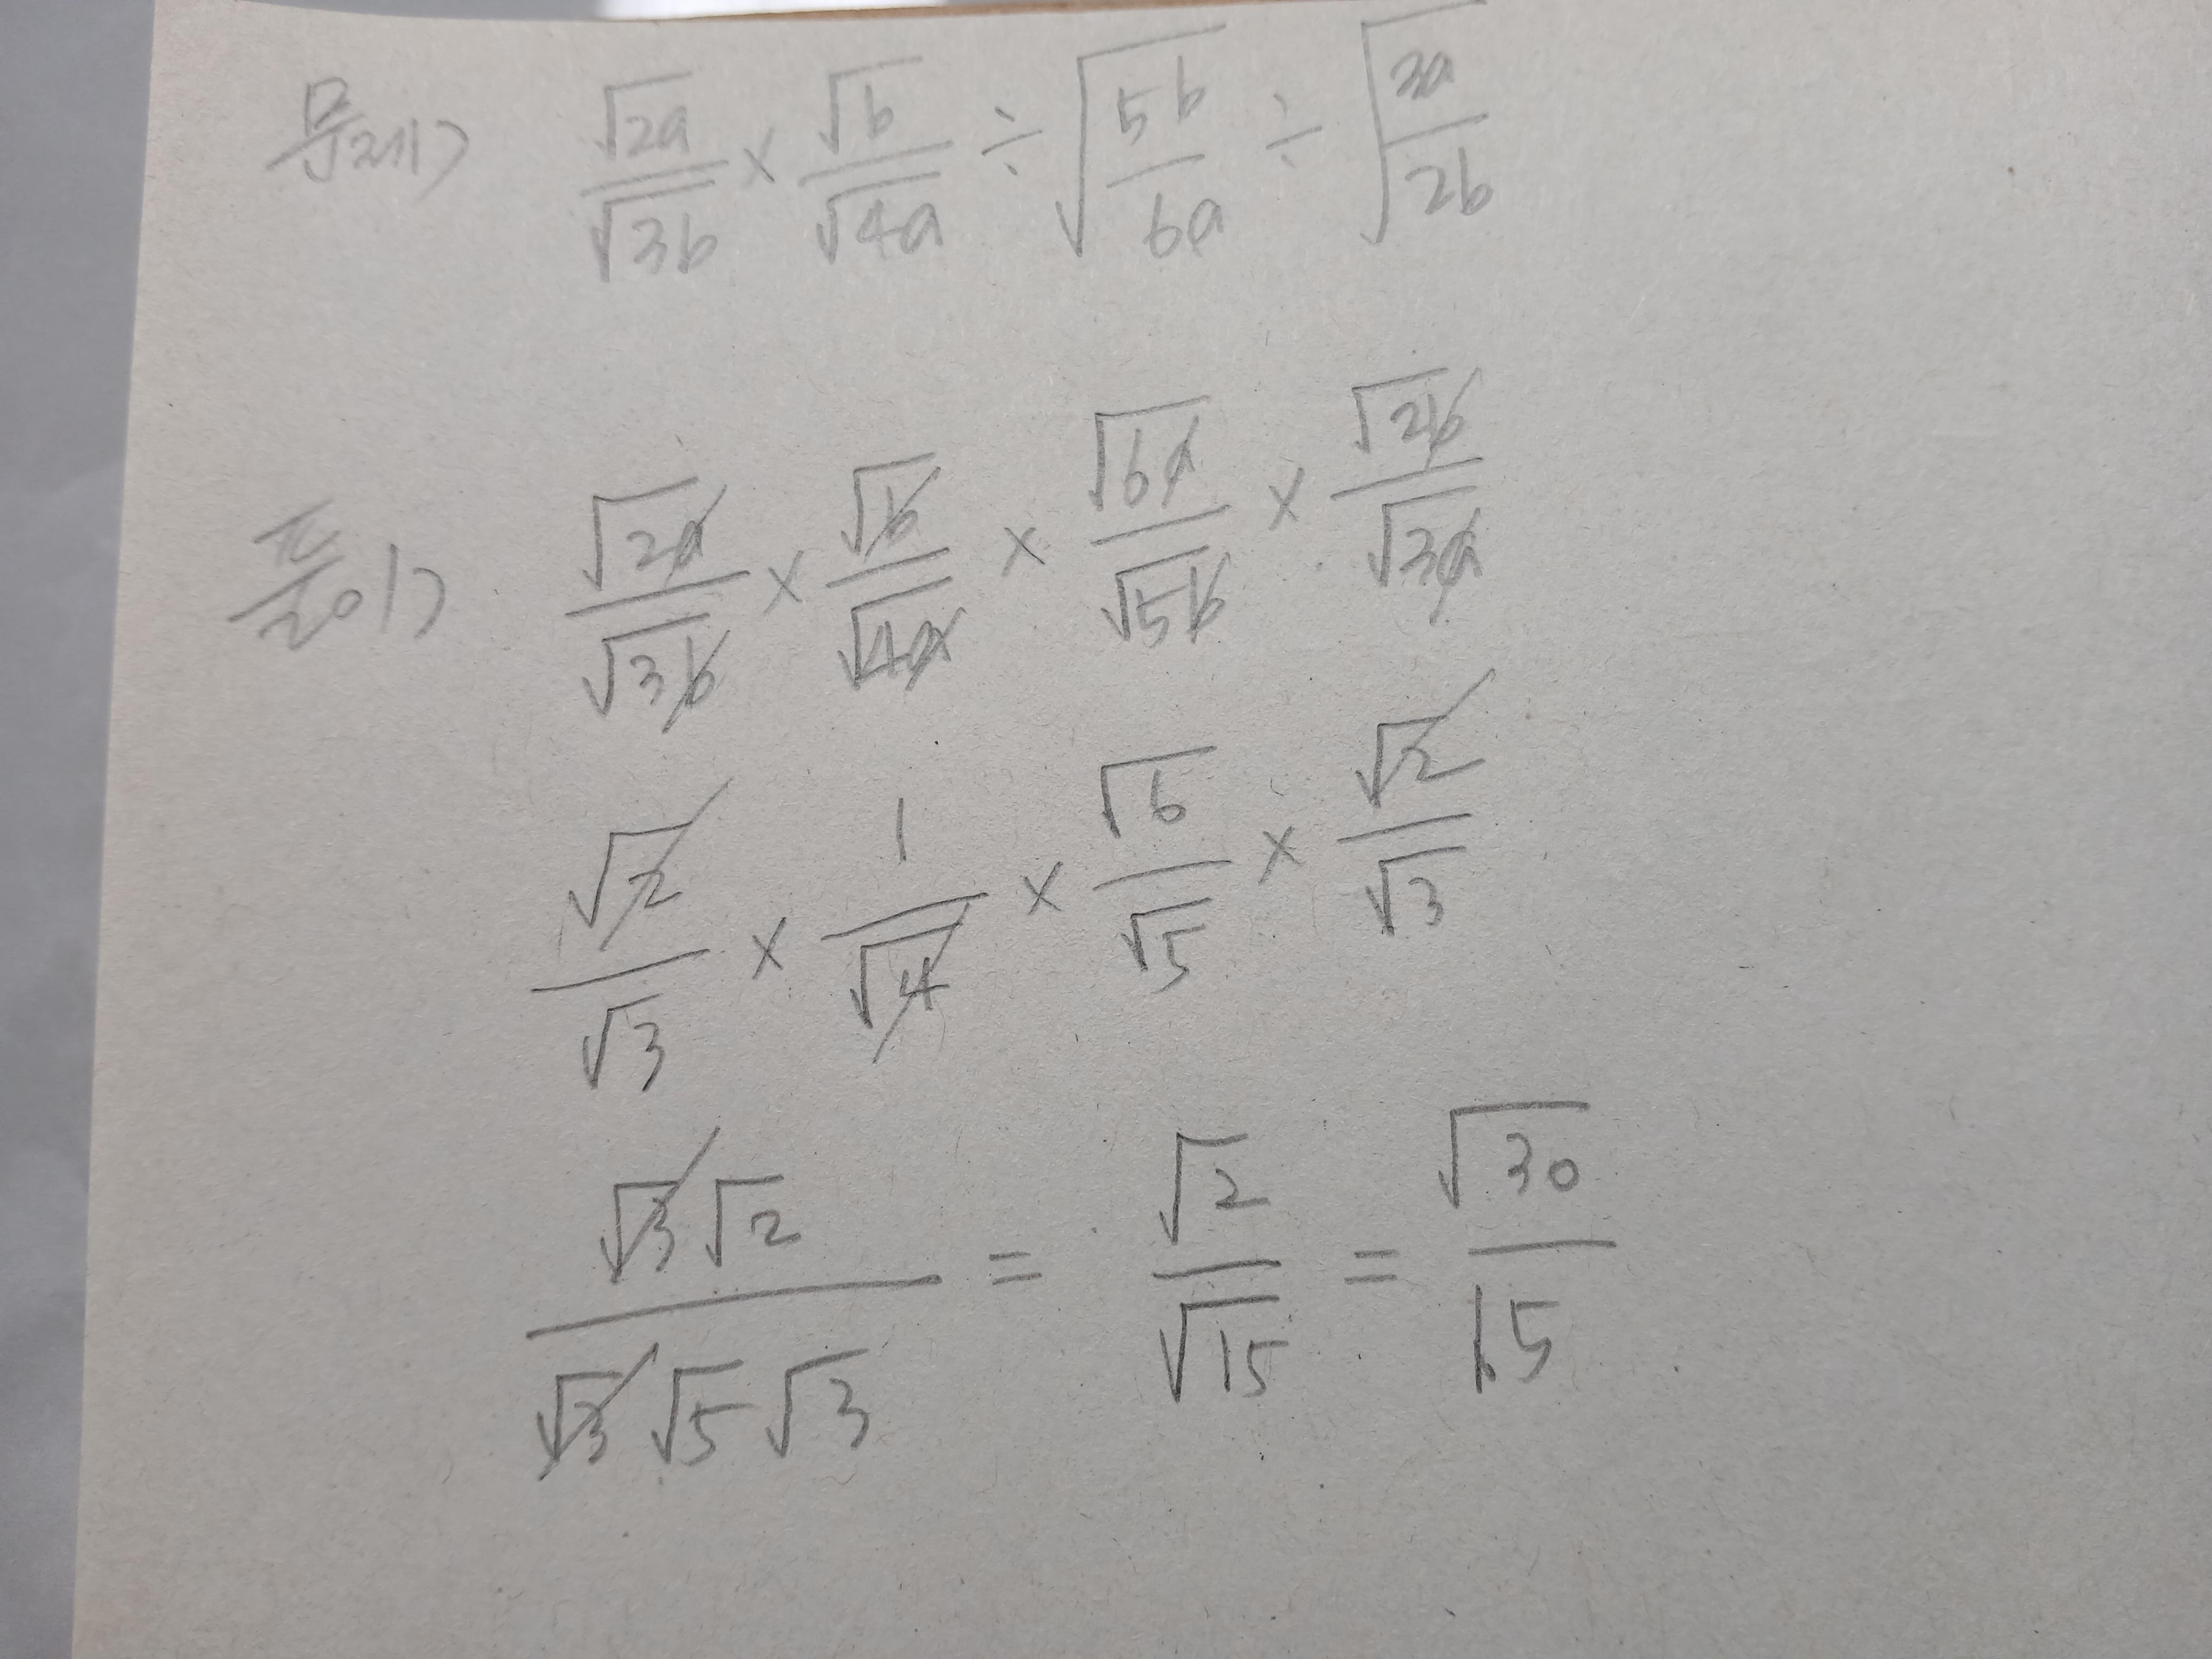 문제> √2a/√3b × √b/√4a ÷ √(5b/6a) ÷ √(3a/2b)
풀이> √2a/√3b × √b/√4a × √6a/√5b × √2b/√3a
√2/√3 × 1/√4 × √6/√5 × √2/√3
√3√2/√3√5√3 = √2/√15 = √30/15